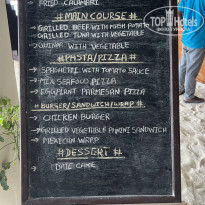 TopHotels
FRIED CALAMERI
# MAIN COURSE #
→ GRILLED BEEF WITH MUSHROOM
GRILLED TUNA WITH VEGETABLE
→ QUINAR WITH VEGETABLE
# PASTA/PIZZA #
→ SPAGHETTI WITH TOMATO SAUCE
→ MIX SEAFOOD PIZZA
→ EGGPLANT PARMESAN PIZZA
# BURGER/SANDWICH/WRAP #
→ CHICKEN BURGER
→ GRILLED VEGETABLE PANINI SANDWICH
→ MEXICAN WRAP
# DESSERT #
→ DATE CAKE